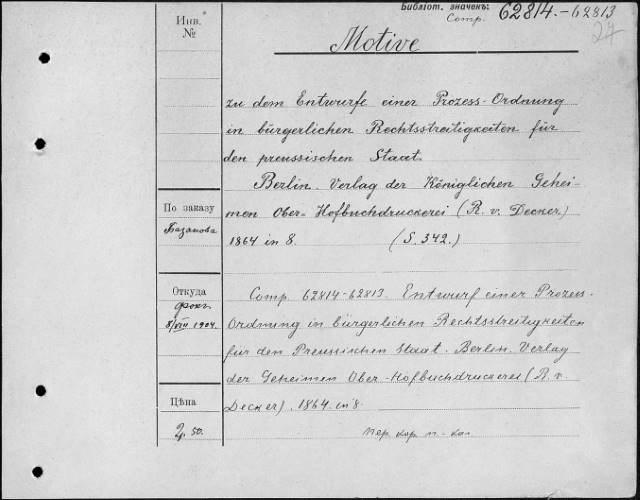 Библіот. значекъ: 62814.-62813
Comp.
24
Инв. №
Motive
zu dem Entwurfe einer Prozess-Ordnung
in bürgerlichen Rechtsstreitigkeiten für
den preussischen Staat.
Berlin. Verlag der Königlichen Gehei-
men Ober-Hofbuchdruckerei (R. v. Decker.)
1864 in 8. (S. 342.)
По заказу
Базанова
Откуда
Фокъ.
8/VIII 1904.
Comp. 62814-62813. Entwurf einer Prozess-
Ordnung in bürgerlichen Rechtsstreitigkeiten
für den Preussischen Staat. Berlin. Verlag
der Geheimen Ober-Hofbuchdruckerei (R. v.
Decker). 1864. in 8.
Цѣна
2.50.